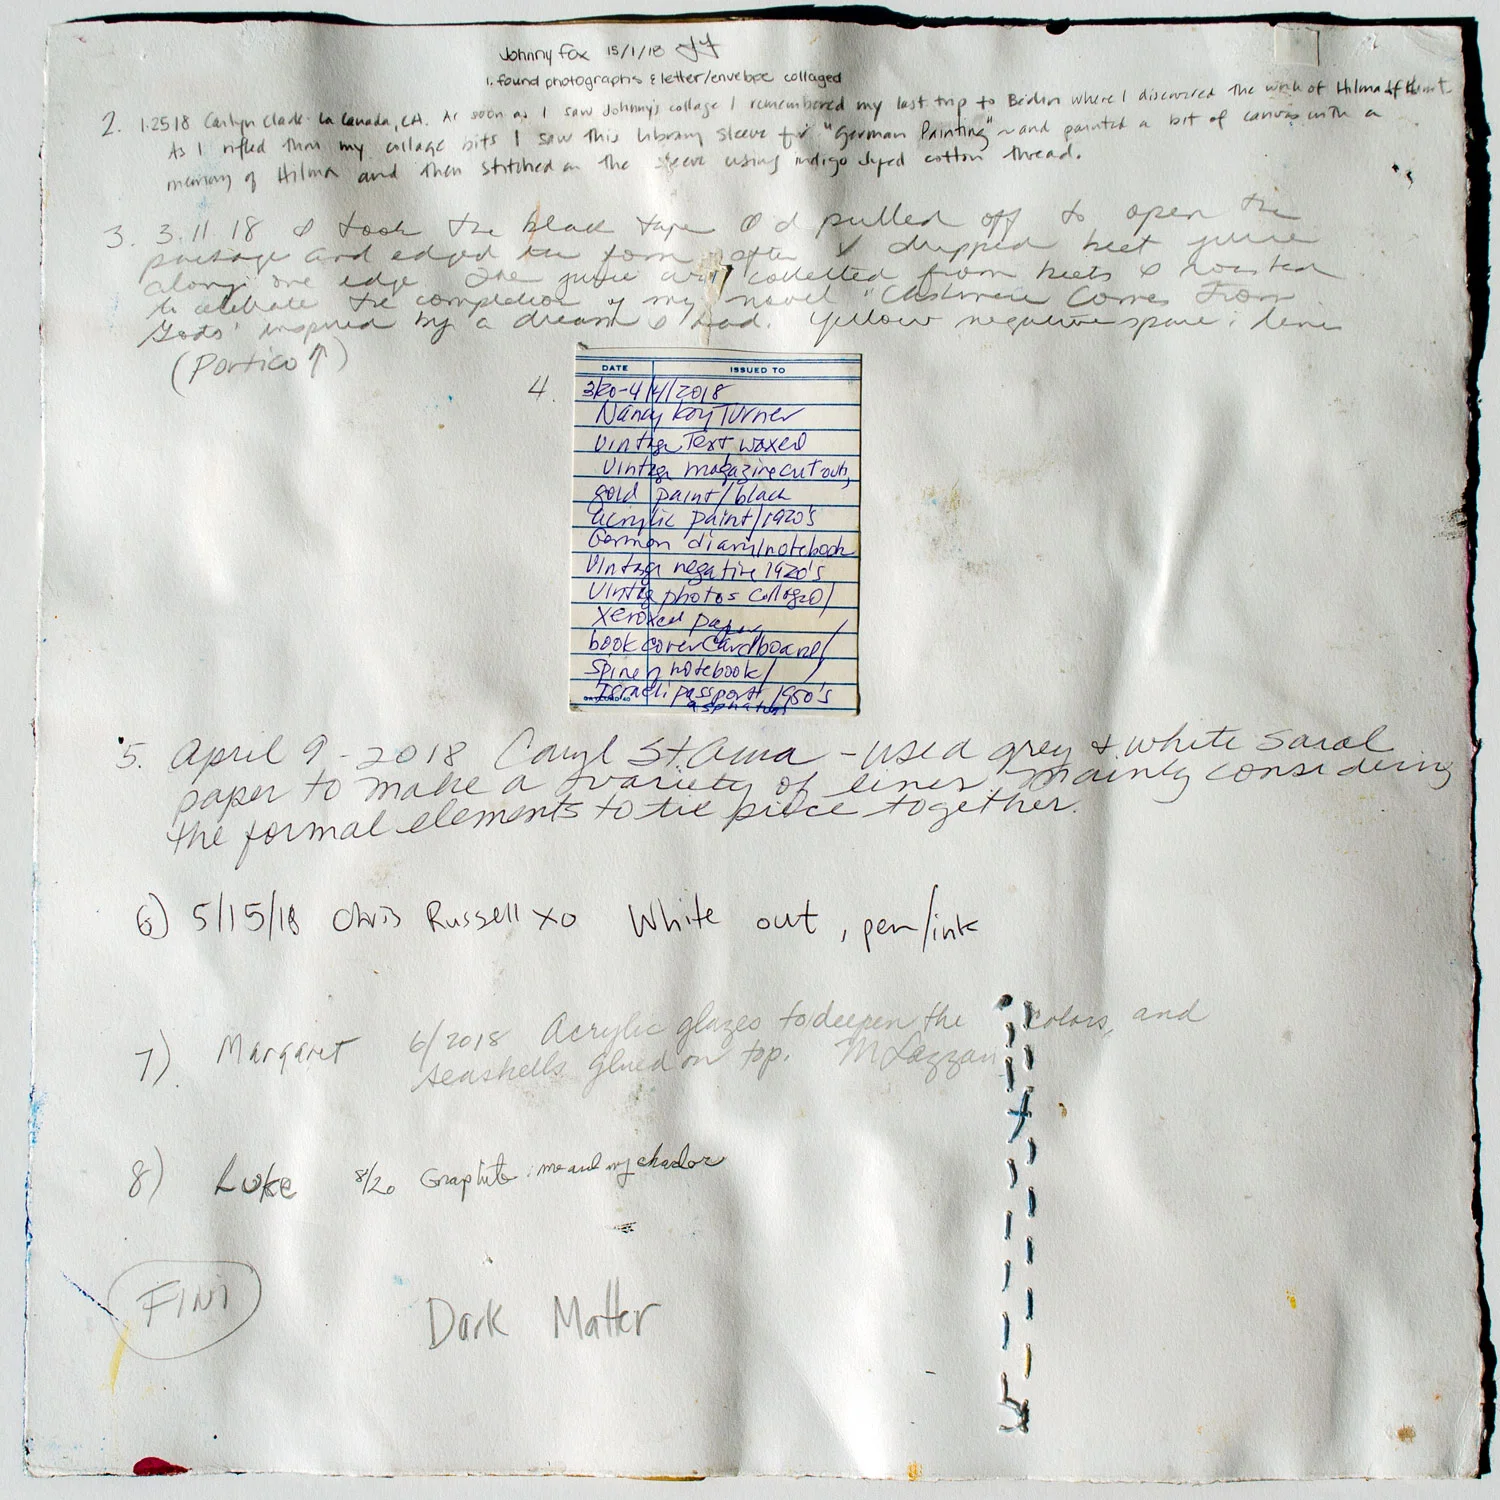 Johnny Fox 15/1/18 JF
1. found photographs & letter/envelope collaged
2. 1.25.18 Carolyn Clark La Canada, CA. As soon as I saw Johnny's collage I remembered my last trip to Berlin where I discovered the work of Hilma Af Klint
As I rifled thru my collage bits I saw this library sleeve for "German Painting" and painted a bit of canvas with a
memory of Hilma and then stitched on the sleeve using indigo dyed cotton thread.
3. 3.11.18 I took the black tape I'd pulled off to open the
package and edged the form after I dripped beet juice
along one edge. The juice was collected from beets I roasted
to celebrate the completion of my novel "Cashmere Comes From
Goats" inspired by a dream I had. Yellow negative space:
(Portico ↑)
4.
DATE ISSUED TO
3/20-4/4/2018
Nancy Kay Turner
Vintage Text waxed
Vintage magazine cut outs,
gold paint/black
acrylic paint/1920's
German diary/notebook
Vintage negative 1920's
Vintage photos collaged/
Xeroxed paper
book cover cardboard/
Spine of notebook/
Israeli passport 1950's
5. April 9-2018 Caryl St. Ama - used grey & white Saral
paper to make a variety of lines, mainly considering
the formal elements to tie piece together.
6) 5/15/18 Chris Russell xo White out, pen/ink
7) Margaret 6/2018 Acrylic glazes to deepen the colors, and
seashells glued on top. M Lazzari
8) Luke 8/20 Graphite: me and my shadow
FINI
Dark Matter